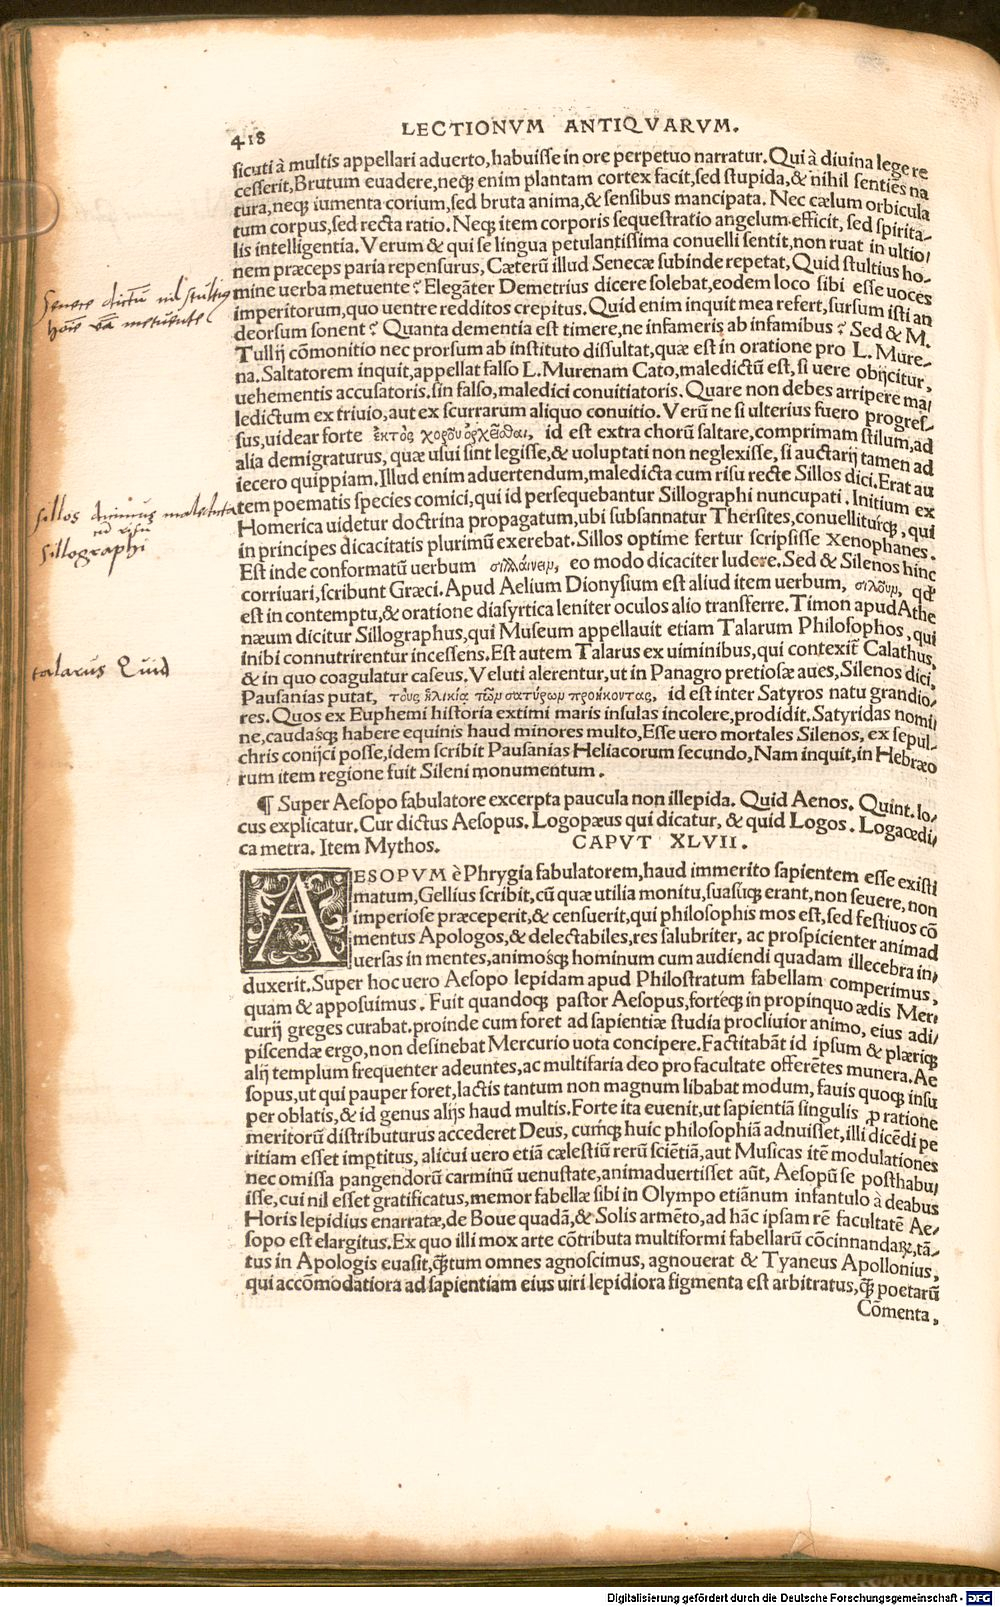 418 LECTIONVM ANTIQVARVM.
sicuti à multis appellari aduerto,habuisse in ore perpetuo narratur.Qui à diuina lege re
cesserit,Brutum euadere,neqꝫ enim plantam cortex facit,sed stupida,& nihil sentiēs na
tura,neqꝫ iumenta corium,sed bruta anima,& sensibus mancipata. Nec cælum orbicula
tum corpus,sed recta ratio. Neqꝫ item corporis sequestratio angelum efficit, sed spirita-
lis intelligentia. Verum & qui se lingua petulantissima conuelli sentit,non ruat in ultio/
nem præceps paria repensurus, Cæterū illud Senecæ subinde repetat, Quid stultius ho-
Senece dictū nil stultius
mine uerba metuente? Elegāter Demetrius dicere solebat,eodem loco sibi esse uoces
hoīe metuente
imperitorum,quo uentre redditos crepitus. Quid enim inquit mea refert,sursum isti an
deorsum sonent? Quanta dementia est timere,ne infameris ab infamibus? Sed & M.
Tullij cōmonitio nec prorsum ab instituto dissultat,quæ est in oratione pro L. Mure-
na. Saltatorem inquit,appellat falso L.Murenam Cato,maledictū est, si uere obijcitur,
uehementis accusatoris.sin falso,maledici conuitiatoris. Quare non debes arripere ma/
ledictum ex triuio,aut ex scurrarum aliquo conuitio. Verū ne si ulterius fuero progres-
sus,uidear forte ἐκτὸς χοροῦ ὀρχεῖσθαι, id est extra chorū saltare,comprimam stilum,ad
alia demigraturus, quæ usui sint legisse,& uoluptati non neglexisse, si auctarij tamen ad
iecero quippiam.Illud enim aduertendum,maledicta cum risu recte Sillos dici.Erat au
Sillos dicimus maledicta
tem poematis species comici,qui id persequebantur Sillographi nuncupati. Initium ex
cū risu
Homerica uidetur doctrina propagatum,ubi subsannatur Thersites,conuelliturqꝫ,qui
Sillographi
in principes dicacitatis plurimū exerebat. Sillos optime fertur scripsisse Xenophanes.
Est inde conformatū uerbum σιλλαίνειν, eo modo dicaciter ludere. Sed & Silenos hinc
corriuari,scribunt Græci. Apud Aelium Dionysium est aliud item uerbum, σιλοῦν, qđ
est in contemptu,& oratione diasyrtica leniter oculos alio transferre. Timon apud Athe
næum dicitur Sillographus,qui Museum appellauit etiam Talarum Philosophos, qui
inibi connutrirentur incessens.Est autem Talarus ex uiminibus,qui contexit̄ Calathus,
talarus Quid
& in quo coagulatur caseus. Veluti alerentur,ut in Panagro pretiosæ aues, Silenos dici,
Pausanias putat, τοὺς ἡλικίᾳ τῶν σατύρων προήκοντας, id est inter Satyros natu grandio/
res. Quos ex Euphemi historia extimi maris insulas incolere,prodidit. Satyridas nomi
ne,caudasqꝫ habere equinis haud minores multo,Esse uero mortales Silenos, ex sepul-
chris conijci posse,idem scribit Pausanias Heliacorum secundo, Nam inquit,in Hebræo
rum item regione fuit Sileni monumentum.
¶ Super Aesopo fabulatore excerpta paucula non illepida. Quid Aenos. Quint.lo/
cus explicatur. Cur dictus Aesopus. Logopæus qui dicatur, & quid Logos. Logaœdi/
ca metra. Item Mythos. CAPVT XLVII.
AESOPVM è Phrygia fabulatorem,haud immerito sapientem esse existi
matum,Gellius scribit,cū quæ utilia monitu,suasuqꝫ erant,non seuere, non
imperiose præceperit,& censuerit,qui philosophis mos est,sed festiuos cō
mentus Apologos,& delectabiles,res salubriter, ac prospicienter animad
uersas in mentes,animosqꝫ hominum cum audiendi quadam illecebra in/
duxerit.Super hoc uero Aesopo lepidam apud Philostratum fabellam comperimus,
quam & apposuimus. Fuit quandoqꝫ pastor Aesopus,forteqꝫ in propinquo ædis Mer/
curij greges curabat.proinde cum foret ad sapientiæ studia procliuior animo, eius adi/
piscendæ ergo,non desinebat Mercurio uota concipere. Factitabāt id ipsum & plæriqꝫ
alij templum frequenter adeuntes,ac multifaria deo pro facultate offerētes munera.Ae
sopus,ut qui pauper foret,lactis tantum non magnum libabat modum, fauis quoqꝫ insu
per oblatis,& id genus alijs haud multis.Forte ita euenit,ut sapientiā singulis ꝓ ratione
meritorū distributurus accederet Deus, cumqꝫ huic philosophiā adnuisset,illi dicēdi pe
ritiam esset imꝑtitus, alicui uero etiā cælestiū rerū sciētiā,aut Musicas itē modulationes
nec omissa pangendorū carminū uenustate,animaduertisset aūt, Aesopū se posthabu/
isse,cui nil esset gratificatus,memor fabellæ sibi in Olympo etiānum infantulo à deabus
Horis lepidius enarratæ,de Boue quadā,& Solis armēto,ad hāc ipsam rē facultatē Ae/
sopo est elargitus.Ex quo illi mox arte cōtributa multiformi fabellarū cōcinnandaꝝ,tā-
tus in Apologis euasit,ꝗ̃tum omnes agnoscimus, agnouerat & Tyaneus Apollonius,
qui accōmodatiora ad sapientiam eius uiri lepidiora figmenta est arbitratus,ꝗ̃ poetarū
Cōmenta,
Digitalisierung gefördert durch die Deutsche Forschungsgemeinschaft - DFG